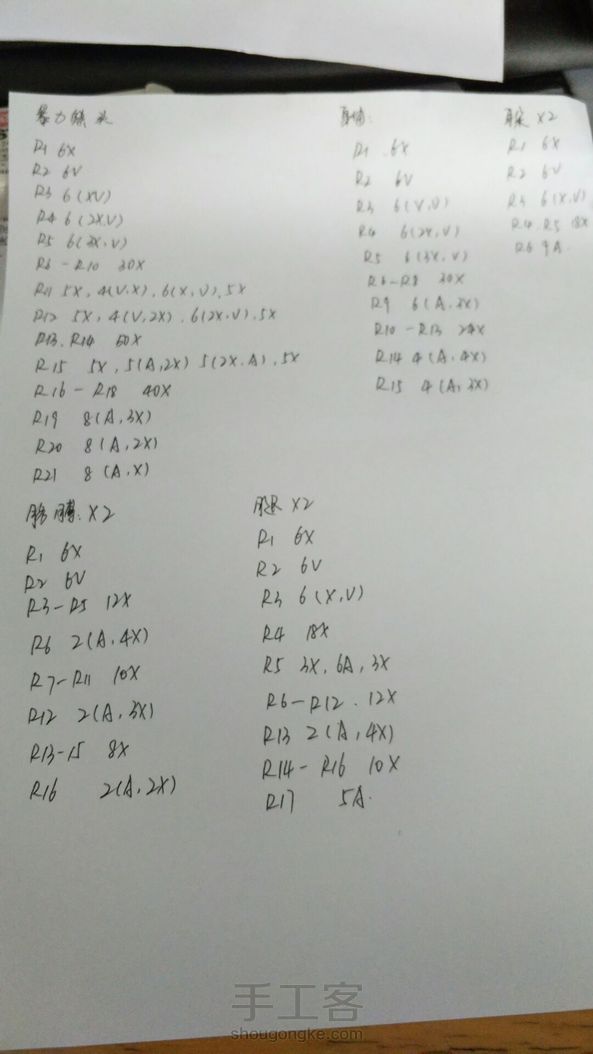 暴力熊 头
R1 6X
R2 6V
R3 6(XV)
R4 6(2X,V)
R5 6(3X,V)
R6-R10 30X
R11 5X,4(V,X),6(X,V),5X
R12 5X,4(V,2X),6(2X,V),5X
R13.R14 50X
R15 5X,5(A,2X) 5(2X,A),5X
R16-R18 40X
R19 8(A,3X)
R20 8(A,2X)
R21 8(A,X)
R1 6X
R2 6V
R3 6(V,V)
R4 6(2X,V)
R5 6(3X,V)
R6-R8 30X
R9 6(A,3X)
R10-R13 24X
R14 4(A,4X)
R15 4(A,3X)
X2
R1 6X
R2 6V
R3 6(X,V)
R4.R5 18X
R6 9A.
胳膊:X2
R1 6X
R2 6V
R3-R5 12X
R6 2(A,4X)
R7-R11 10X
R12 2(A,3X)
R13-15 8X
R16 2(A,2X)
腿 X2
R1 6X
R2 6V
R3 6(X,V)
R4 18X
R5 3X,6A,3X
R6-R12.12X
R13 2(A,4X)
R14-R16 10X
R17 5A.
手工客
shougongke.com